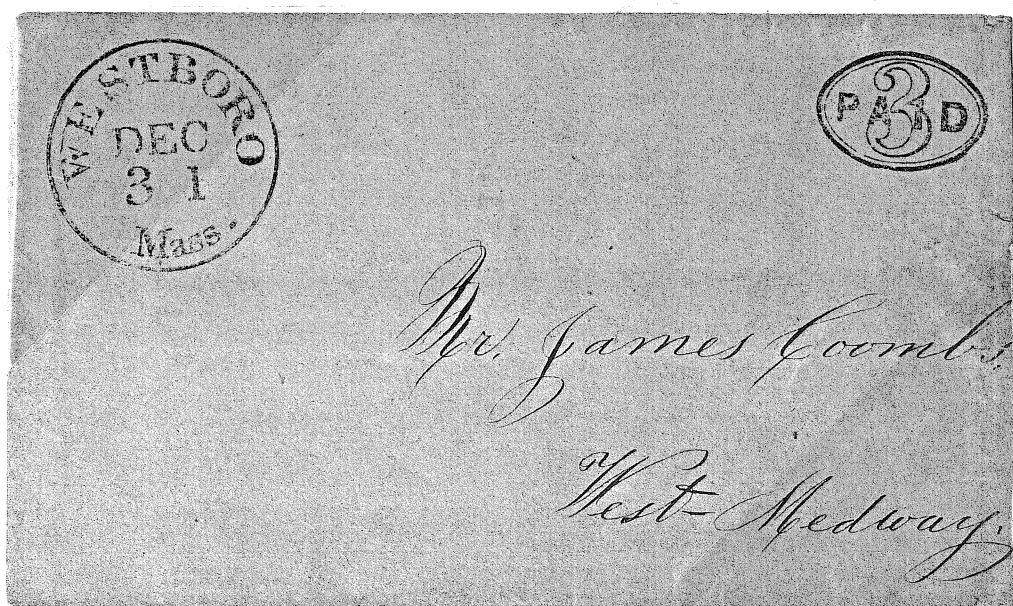 WESTBORO
DEC
3 1
Mass.
PAID
3
Mr. James Coombs.
West-Medway.